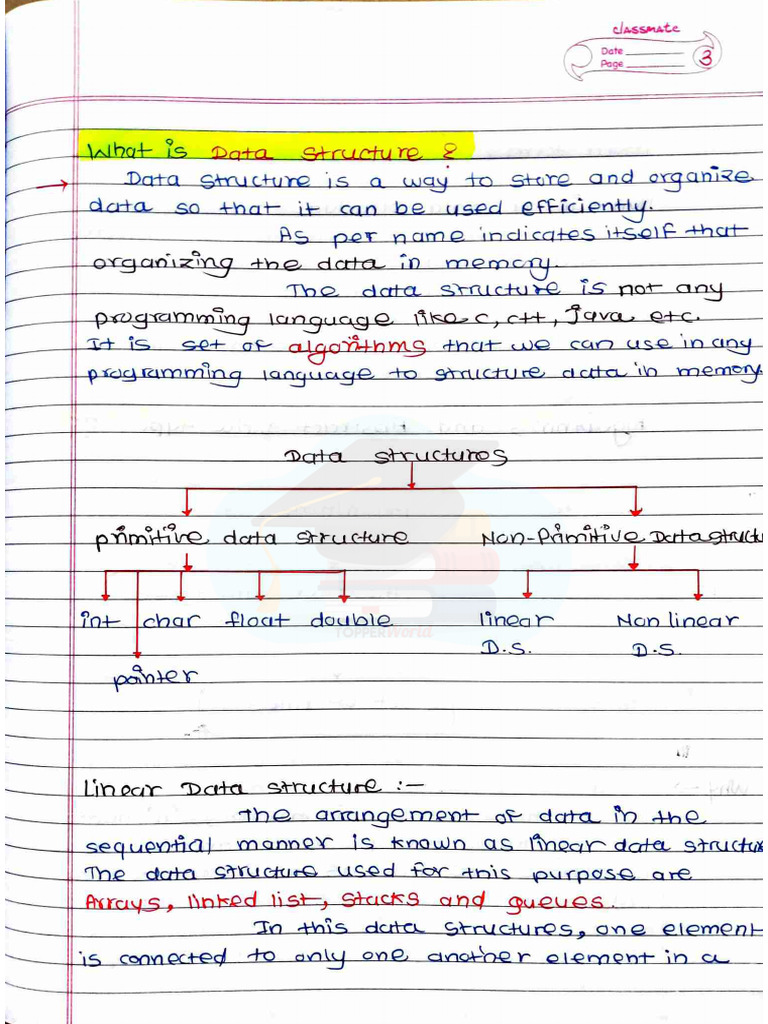 classmate
Date
Page 3
What is Data structure ?
Data structure is a way to store and organize
data so that it can be used efficiently.
As per name indicates itself that
organizing the data in memory.
The data structure is not any
programming language like c, c++, Java etc.
It is set of algorithms that we can use in any
programming language to structure data in memory.
Data structures
primitive data structure Non-Primitive Data structu
int char float double linear Non linear
D.S. D.S.
TOPPERWorld
pointer
Linear Data structure :-
The arrangement of data in the
sequential manner is known as linear data structu
The data structure used for this purpose are
Arrays, linked list, stacks and queues.
In this data structures, one element
is connected to only one another element in a